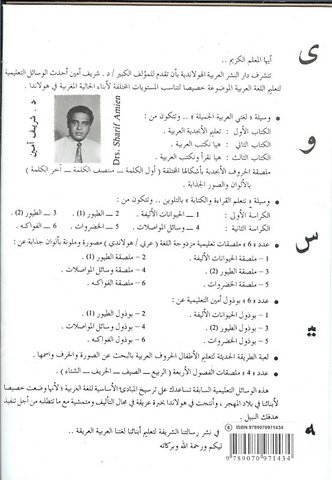 أيها المعلم الكريم ..
تتشرف دار النشر العربية الهولاندية بأن تقدم للمؤلف الكبير / د . شريف أمين أحدث الوسائل التعليمية
لتعليم اللغة العربية الموضوعة خصيصا لتناسب المستويات المختلفة لأبناء الجالية المغربية في هولاندا .
● وسيلة « لغتي العربية الجميلة » .. وتتكون من :
الكتاب الأول : تعلم الأبجدية العربية .
الكتاب الثاني : هيا نكتب العربية .
الكتاب الثالث : هيا نقرأ ونكتب العربية .
ملصقة الحروف الأبجدية بأشكالها المختلفة ( أول الكلمة ــ منتصف الكلمة ــ آخر الكلمة )
بالألوان والصور الجذابة .
د . شريف أمين
Drs. Sharif Amien
● وسيلة « نتعلم القراءة والكتابة » بالتلوين .. وتتكون من :
الكراسة الأولى : 1 ــ الحيوانات الأليفة . 2 ــ الطيور (1) 3 ــ الطيور (2)
الكراسة الثانية : 4 ــ وسائل المواصلات . 5 ــ الخضروات . 6 ــ الفواكه .
● عدد « 6 » ملصقات تعليمية مزدوجة اللغة ( عربي / هولاندي ) مصورة وملونة بألوان جذابة عن :
1 – ملصقة الحيوانات الأليفة . 2 – ملصقة الطيور (1)
3 – ملصقة الطيور (2) 4 – ملصقة وسائل المواصلات .
5 – ملصقة الخضروات . 6 – ملصقة الفواكه .
● عدد « 6 » بوذول أمين التعليمية عن :
1 – بوذول الحيوانات الأليفة . 2 – بوذول الطيور (1)
3 – بوذول الطيور (2) 4 – بوذول وسائل المواصلات .
5 – بوذول الخضروات . 6 – بوذول الفواكه .
● لعبة الطريقة الحديثة لتعليم الأطفال الحروف العربية بالبحث عن الصورة والحرف واسمها .
● عدد « 4 » ملصقات الفصول الأربعة ( الربيع ــ الصيف ــ الخريف ــ الشتاء ) .
هذه الوسائل التعليمية السابقة تساعدك على ترسيخ المبادئ الأساسية للغة العربية ؛ لأنها وضعت خصيصا
لأبنائنا في بلاد المهجر ، وأنتجت في هولاندا بخبرة عريقة في مجال التأليف ومتمشية مع ما تتطلبه من أجل تنفيذ
هدفك النبيل .
في نشر رسالتنا الشريفة لتعليم أبنائنا لغتنا العربية العريقة ..
ليكم ورحمة الله وبركاته
ISBN 9789070971434
9 789070 971434
ى
و
س
ه